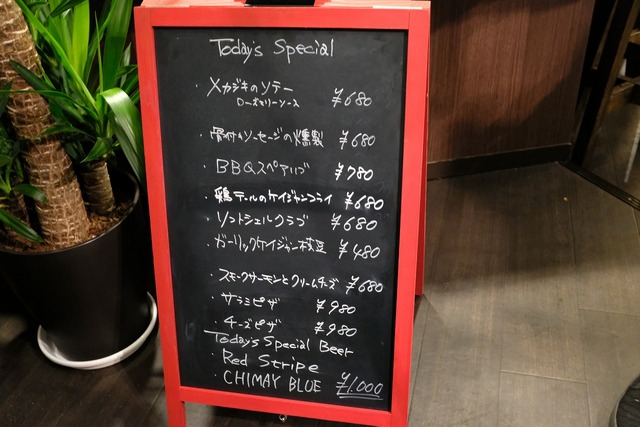 Today's Special
・メカジキのソテー
ローズマリーソース ¥680
・骨付きソーセージの燻製 ¥680
・BBQスペアリブ ¥780
・鶏テールのケイジャンフライ ¥680
・ソフトシェルクラブ ¥680
・ガーリックケイジャン枝豆 ¥480
・スモークサーモンとクリームチーズ ¥680
・サラミピザ ¥980
・チーズピザ ¥980
Today's Special Beer
・Red Stripe
・CHIMAY BLUE ¥1,000